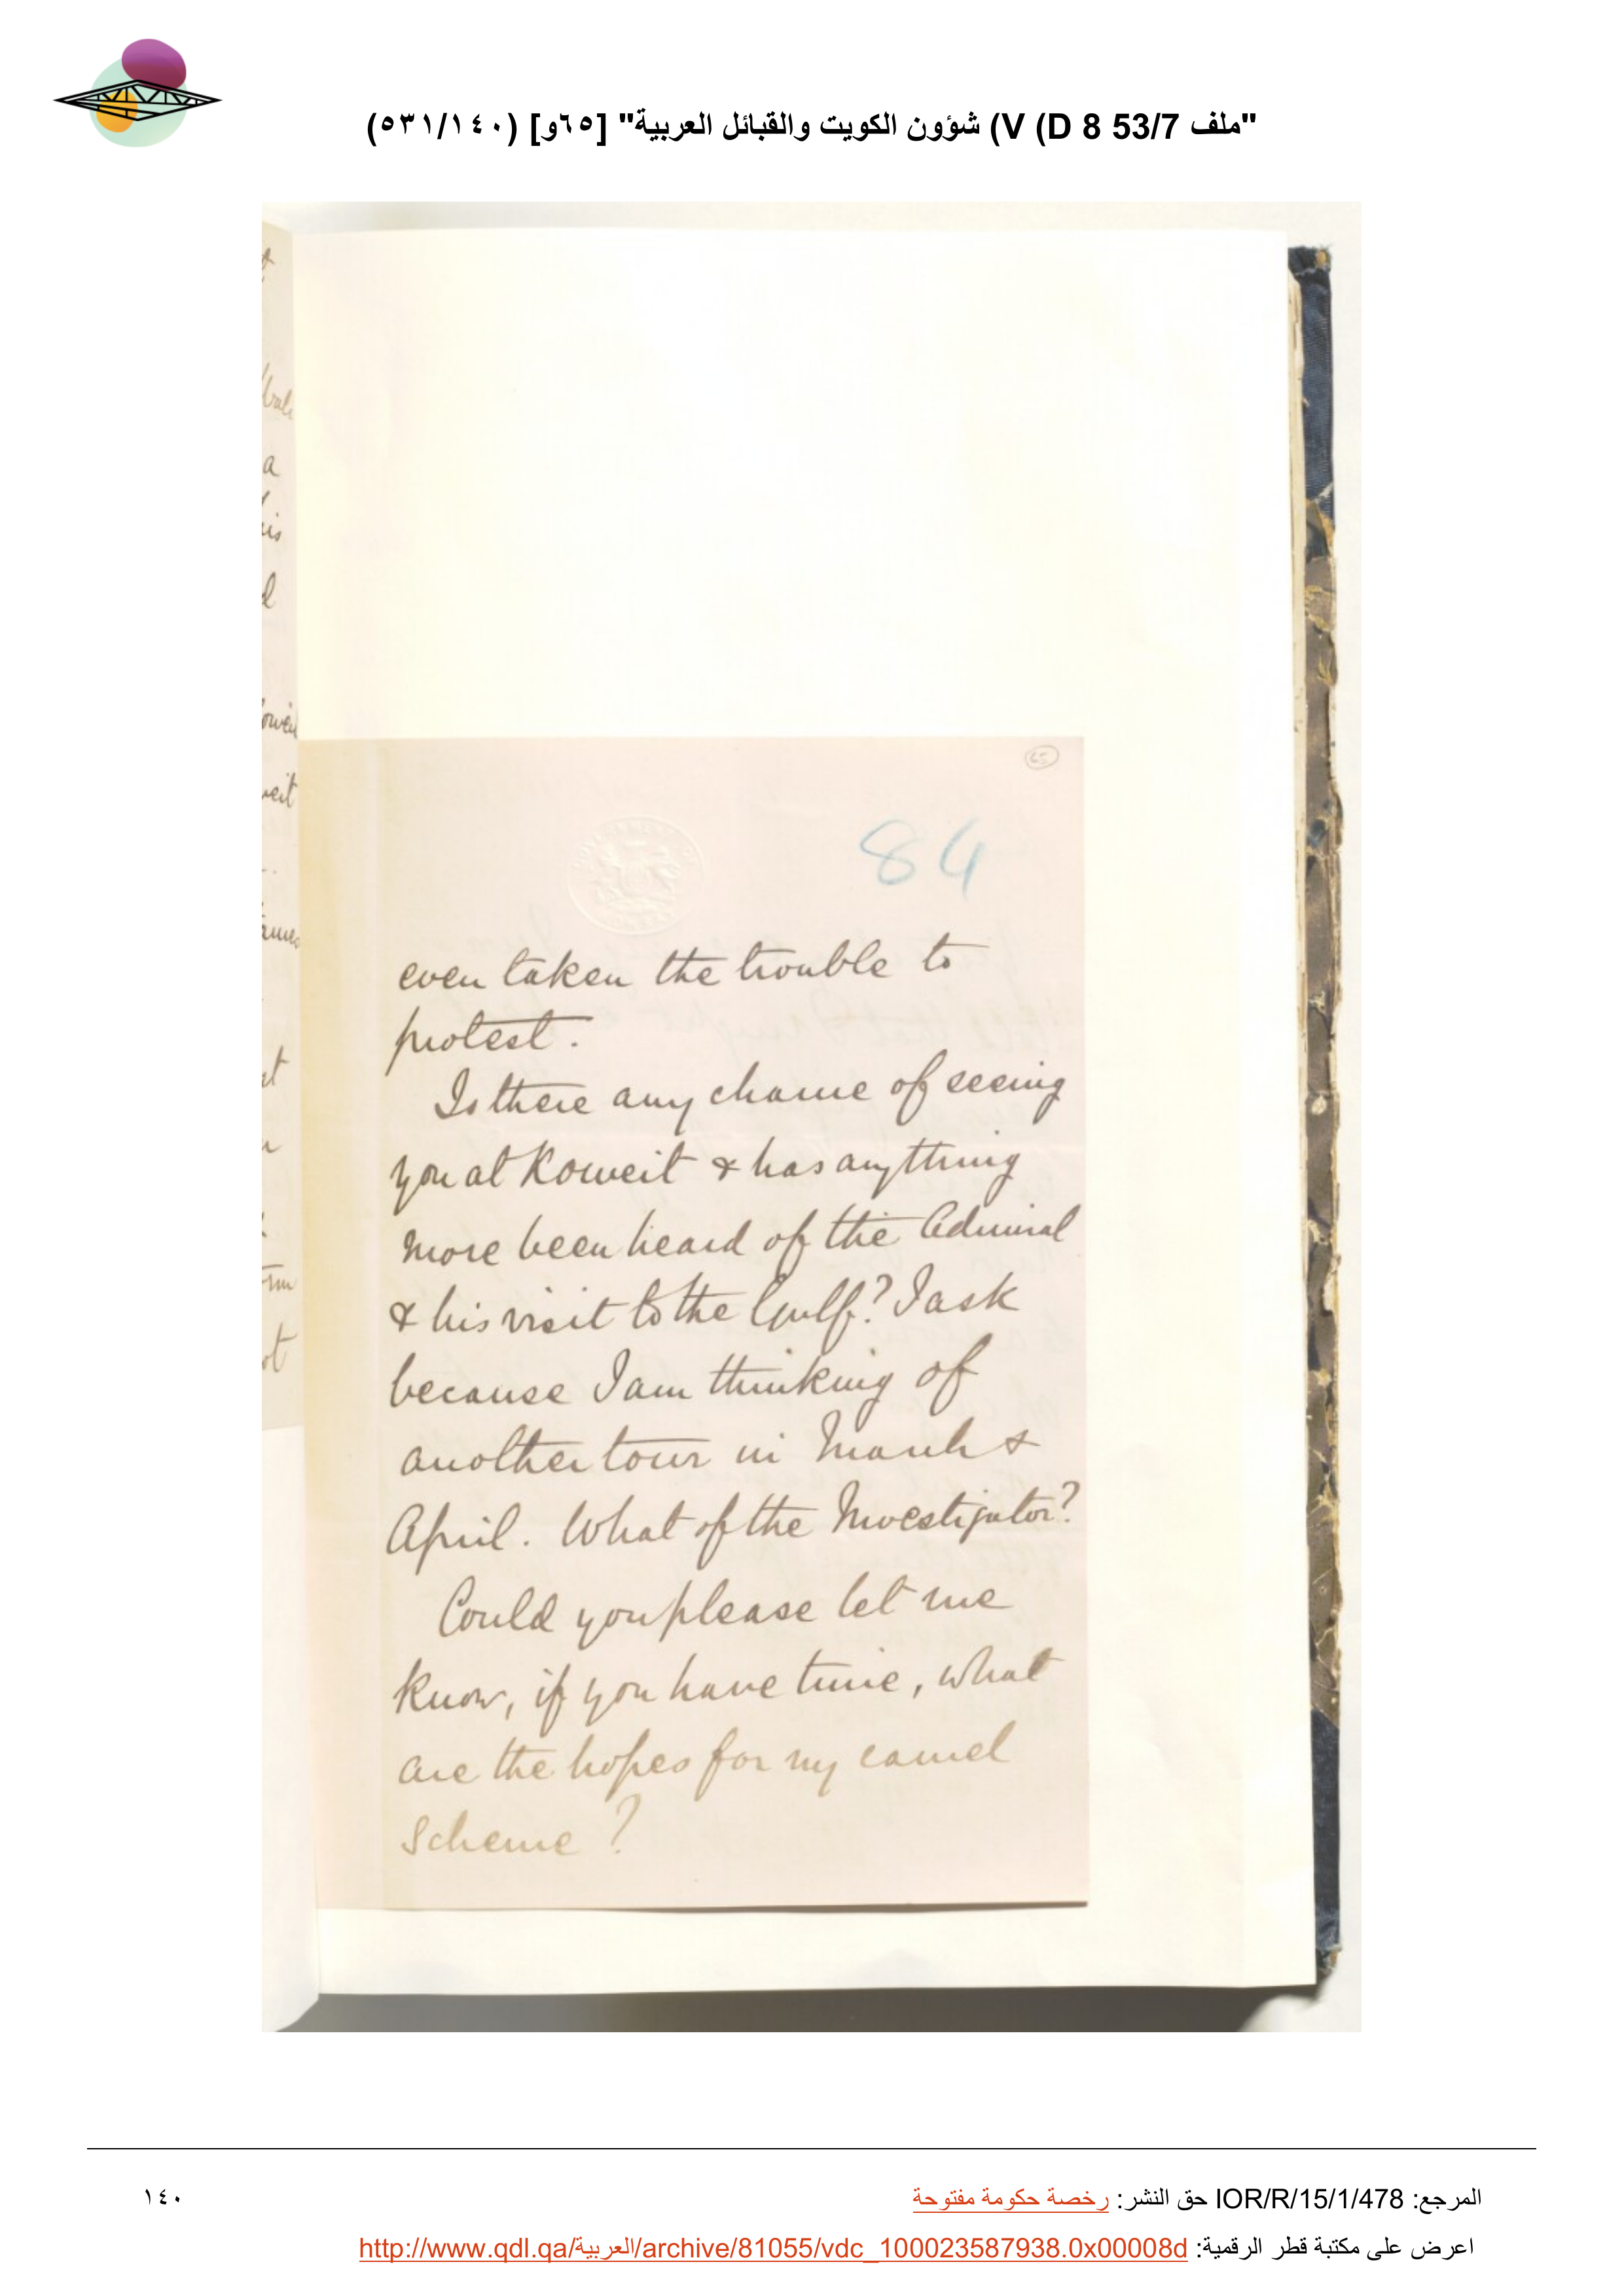 "ملف 53/7 V (D 8) شؤون الكويت والقبائل العربية" [٦٥و] (٥٣١/١٤٠)
65
84
even taken the trouble to
protest.
Is there any chance of seeing
you at Koweit & has anything
more been heard of the Admiral
& his visit to the Gulf? I ask
because I am thinking of
another tour in March &
April. What of the Investigator?
Could you please let me
know, if you have time, what
are the hopes for my camel
scheme?
المرجع: IOR/R/15/1/478 حق النشر: رخصة حكومة مفتوحة
١٤٠
اعرض على مكتبة قطر الرقمية: http://www.qdl.qa/العربية/archive/81055/vdc_100023587938.0x00008d